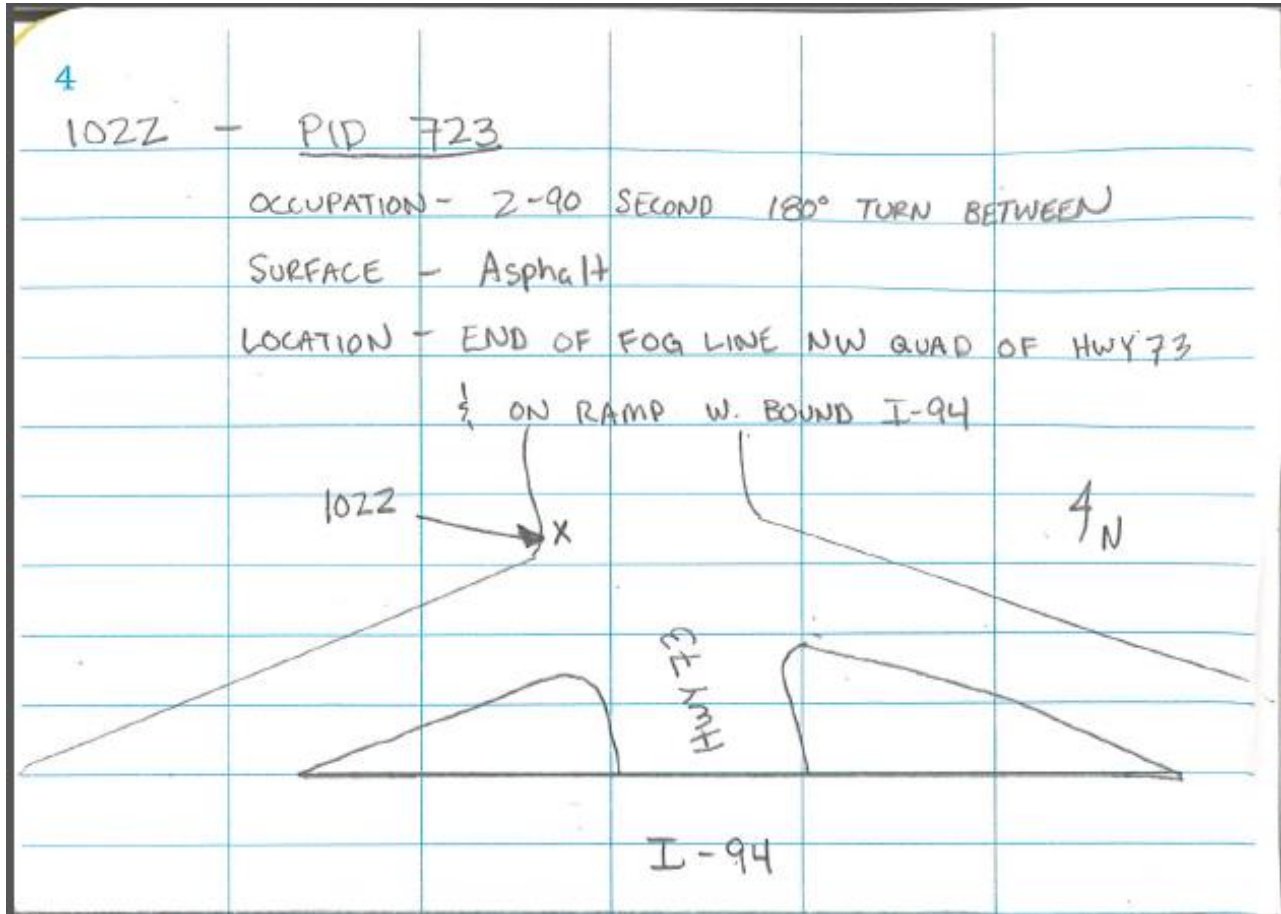 4
1022 - PID 723
OCCUPATION - 2-90 SECOND 180° TURN BETWEEN
SURFACE - Asphalt
LOCATION - END OF FOG LINE NW QUAD OF HWY 73
& ON RAMP W. BOUND I-94
1022
X
N
Hwy 73
I-94